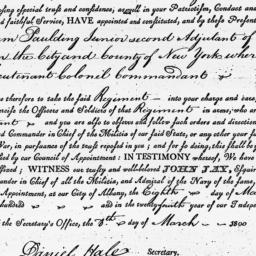 osing especial trust and confidence, as well in your Patriotism, Conduct and
d faithful Service, HAVE appointed and constituted, and by these Present
m Paulding Junior second Adjutant of
n the City and County of New York wher
ieutenant Colonel Commandant
s therefore to take the said Regiment into your charge and care,
ercise the Officers and Soldiers of that Regiment in arms, who are
ant and you are also to observe and follow such orders and direction
d Commander in Chief of the Militia of our said State, or any other your
War, in pursuance of the trust reposed in you; and for so doing, this shall be
ed by our Council of Appointment: IN TESTIMONY whereof, We have
ffixed; WITNESS our trusty and well-beloved JOHN JAY, Esquir
ander in Chief of all the Militia, and Admiral of the Navy of the same,
Appointment, at our City of Albany, the Eighth day of M
hundred and in the twenty fourth year of our Indepen
the Secretary's Office, the 8th day of March 1800
Daniel Hale Secretary.